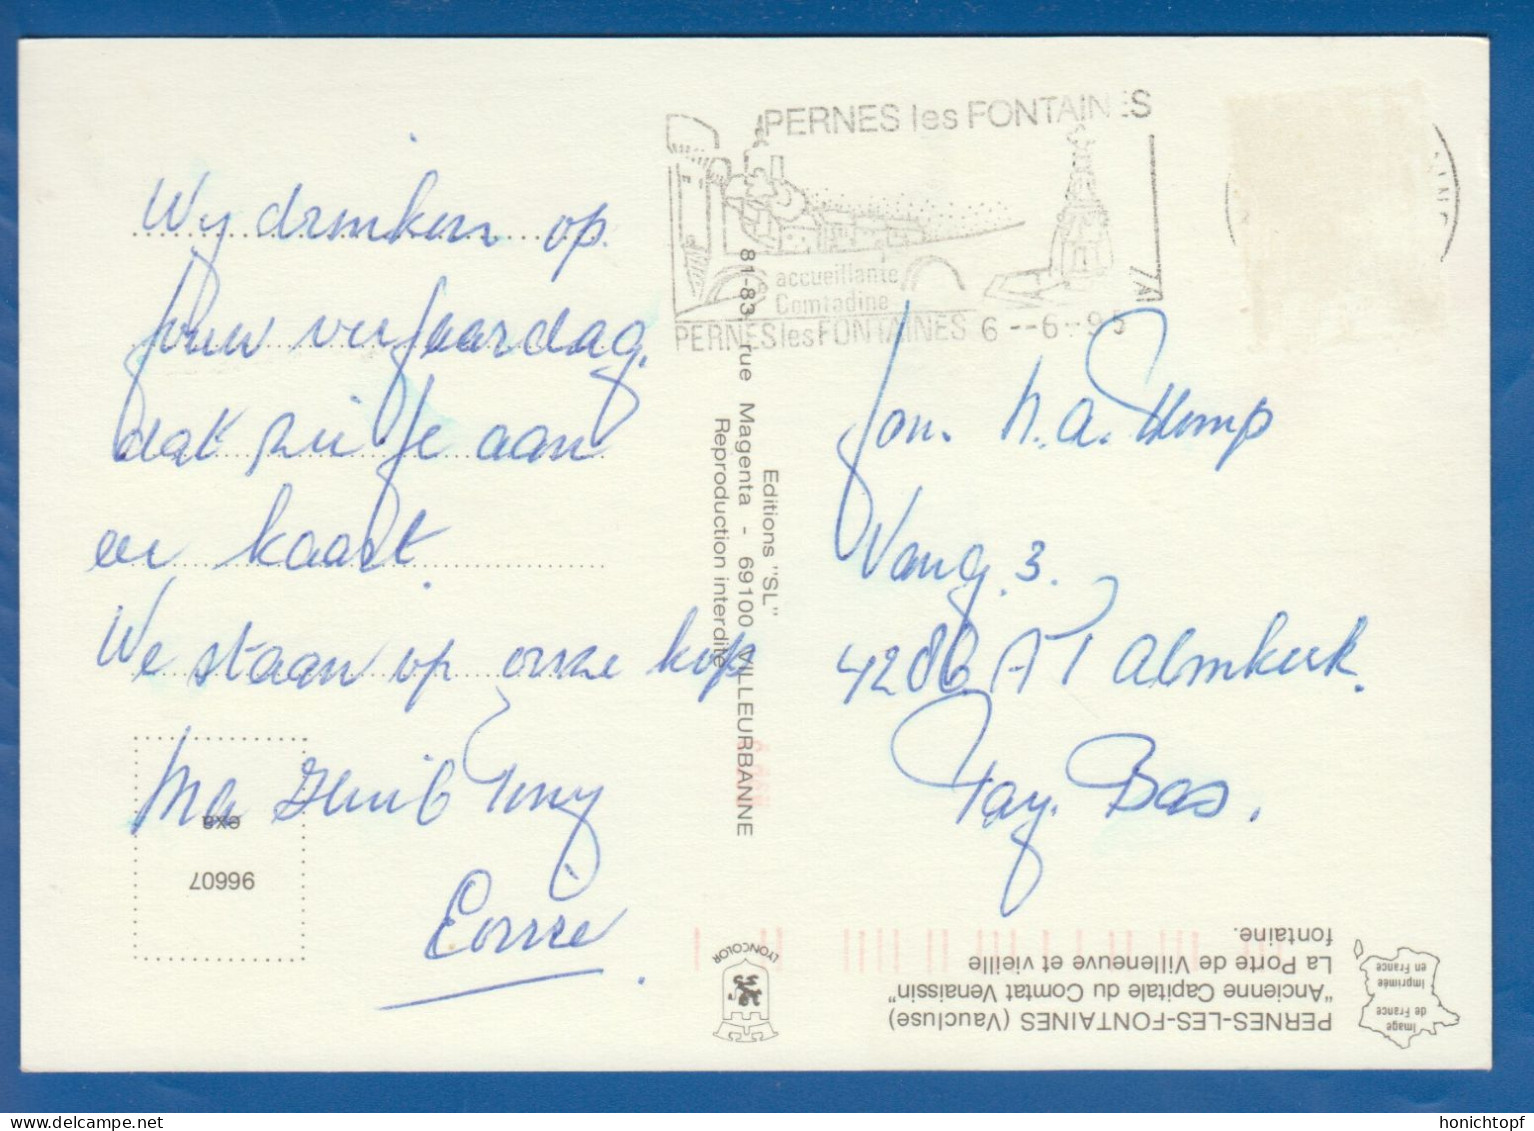 PERNES les FONTAINES
accueillante
Comtadine
7A
PERNES les FONTAINES 6 - - 6 - 95
Wy drinken op
jouw verjaardag.
dat zie je aan
de kaart.
We staan op onze kop
Ma
Tony
Corrie
Editions "SL"
81-83, rue Magenta - 69100 VILLEURBANNE
Reproduction interdite
Jon. M.A.
Vang. 3.
4286 AT Almkerk.
Pay. Bas.
exa
96607
LYONCOLOR
PERNES-LES-FONTAINES (Vaucluse)
"Ancienne Capitale du Comtat Venaissin"
La Porte de Villeneuve et vieille
fontaine.
Image
de France
Imprimée
en France
honichtopf